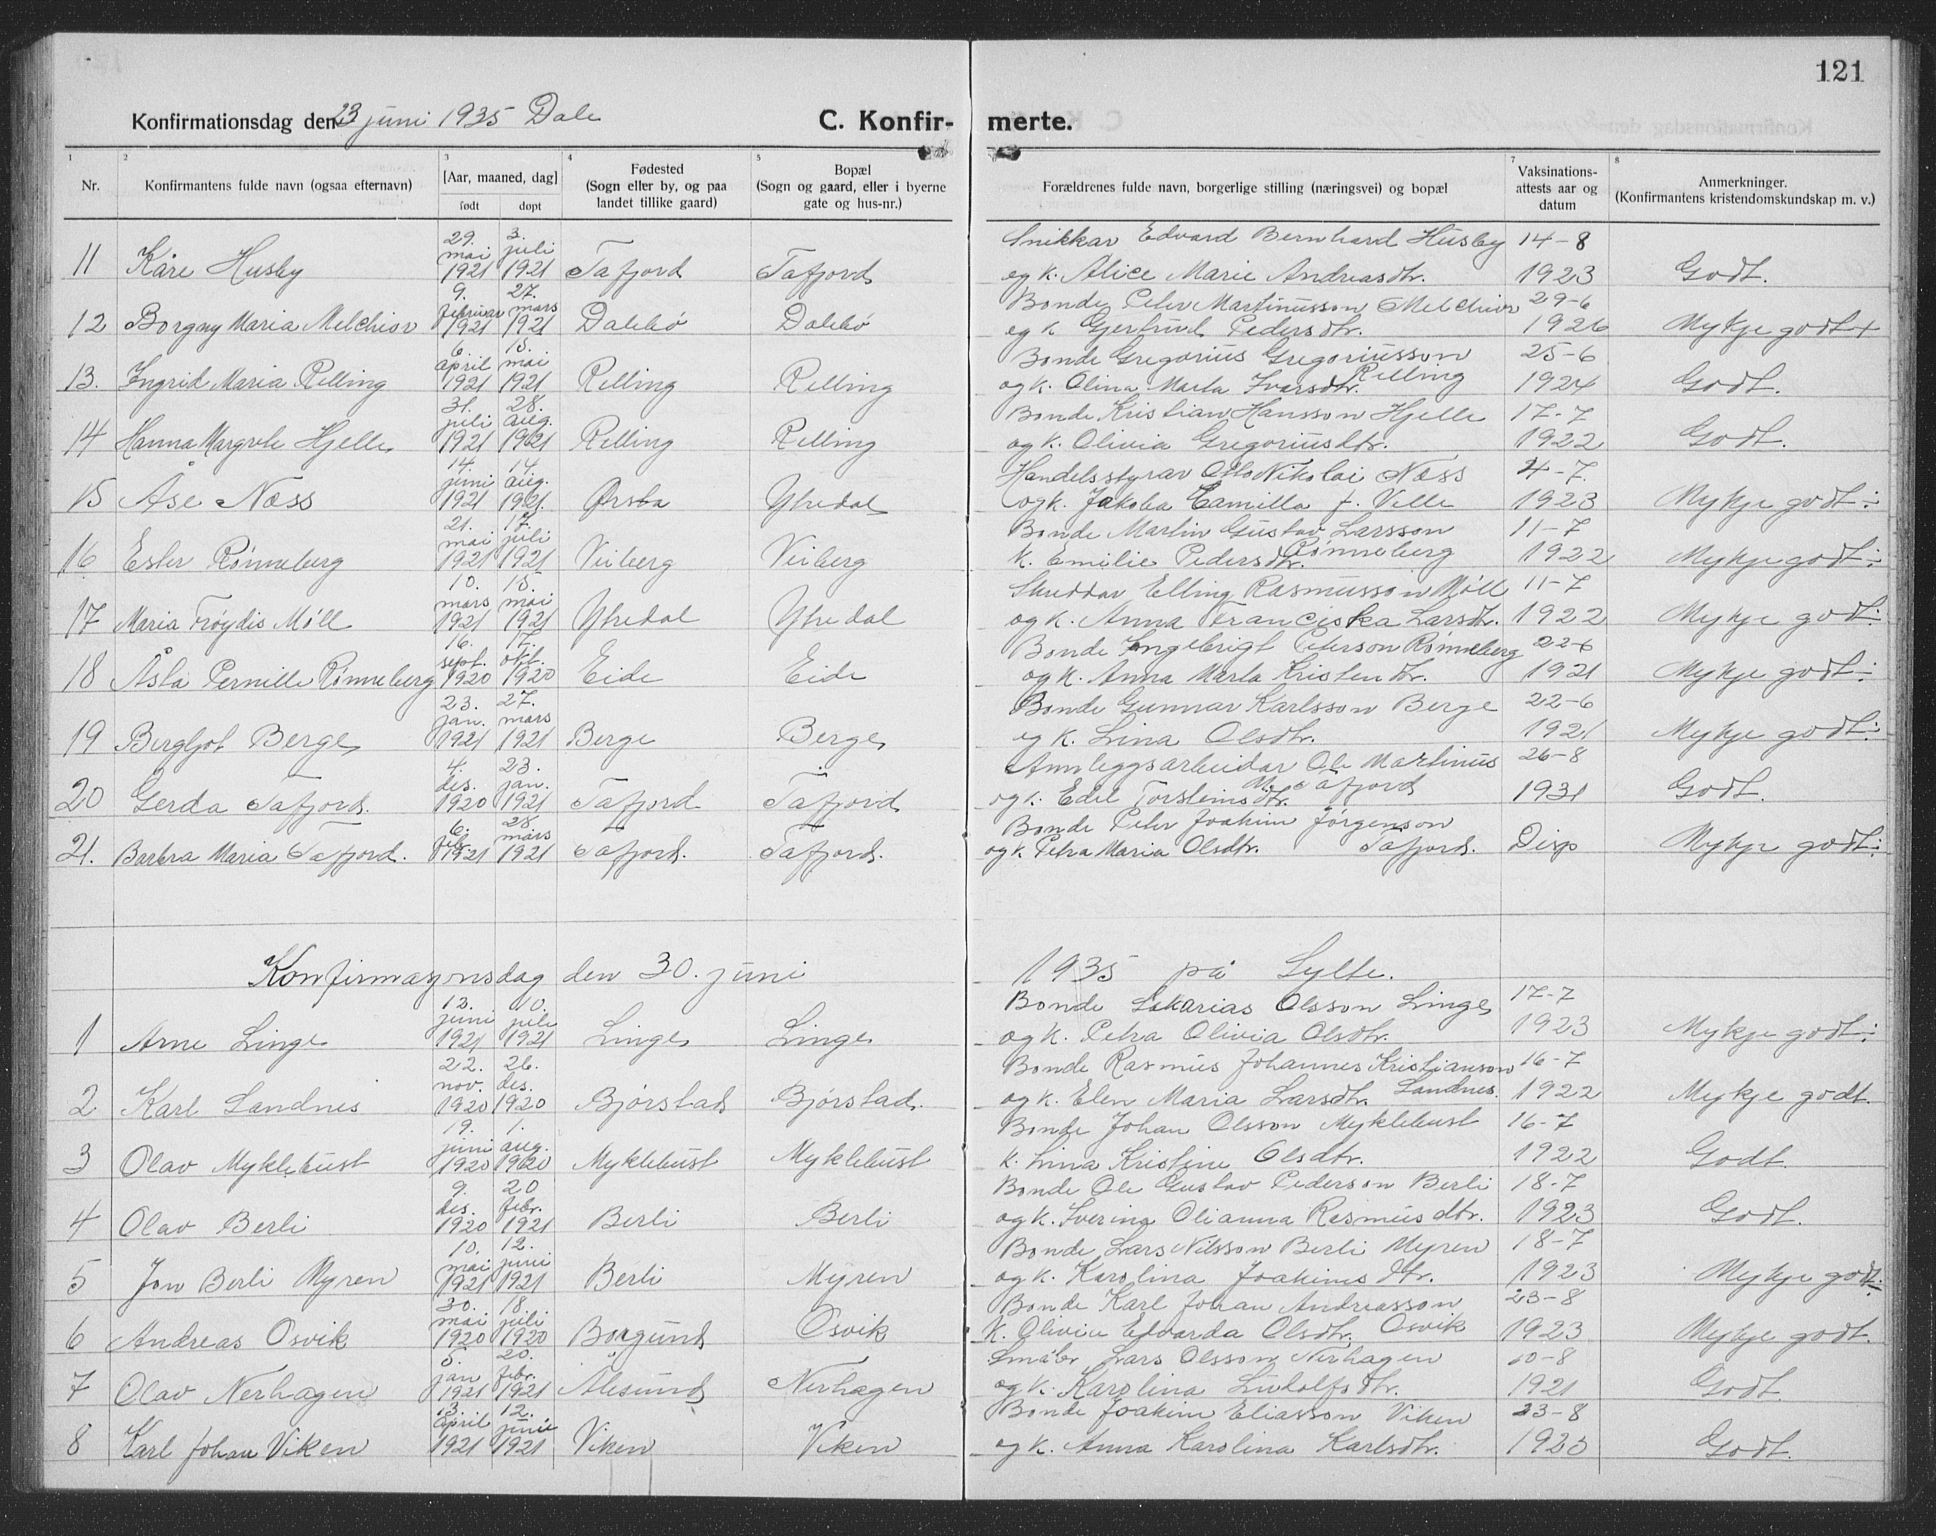 121
Konfirmationsdag den 23 juni 1935 Dale
C. Konfir- merte.
1 2 3 4 5 7 8
Nr. Konfirmantens fulde navn (ogsaa efternavn) [Aar, maaned, dag] født døpt Fødested (Sogn eller by, og paa landet tillike gaard) Bopæl (Sogn og gaard, eller i byerne gate og hus-nr.) Forældrenes fulde navn, borgerlige stilling (næringsvei) og bopæl Vaksinations-attests aar og datum Anmerkninger. (Konfirmantens kristendomskundskap m. v.)
11 Kåre Husby 29. mai 1921 3. juli 1921 Tafjord Tafjord Snikkar Edvard Bernhard Husby og k. Alice Marie Andreasdtr. 14-8 1923 Godt.
12 Borgny Maria Melchior 9. februar 1921 27. mars 1921 Dalebø Dalebø Bonde Peter Martinusson Melchior og k. Gertrud Pedersdtr. 29-6 1926 Mykje godt +
13. Ingrid Maria Relling 6. april 1921 15. mai 1921 Relling Relling Bonde Gregorius Gregoriusson Relling og k. Olina Marta Ivarsdtr. 25-6 1924 Godt.
14 Hanna Margrete Hjelle 31. juli 1921 28. aug. 1921 Relling Relling Bonde Kristian Hansson Hjelle og k. Olivia Gregoriusdtr. 17-7 1922 Godt.
15 Åse Næss 14. juni 1921 14. aug. 1921 Ørsta Ytredal Handelsstyrar Otto Nikolai Næss og k. Jakoba Camilla f. Velle 4-7. 1923 Mykje godt ÷
16 Ester Rønneberg 21. mai 1921 17. juli 1921 Veiberg Veiberg Bonde Martin Gustav Larsson Rønneberg k. Emilie Pedersdtr. 11-7 1922 Mykje godt ÷
17 Maria Frøydis Møll 10. mars 1921 15. mai 1921 Ytredal Ytredal Skreddar Elling Rasmusson Møll og k. Anna Franciska Larsdtr. 11-7 1922 Mykje godt ÷
18 Åsta Pernille Rønneberg 16. sept. 1920 17. okt. 1920 Eide Eide Bonde Ingebrigt Peterson Rønneberg og k. Anna Marta Kristendtr. 22-6 1921 Mykje godt ÷
19 Bergljot Berge 23. jan. 1921 27. mars 1921 Berge Berge Bonde Gunnar Karlsson Berge og k. Lina Olsdtr. 22-6 1921 Mykje godt ÷
20 Gerda Tafjord. 4. des. 1920 23. jan. 1921 Tafjord Tafjord Annleggsarbeidar Ole Martinus M. Tafjord og k. Edel Torsteinsdtr. 26-8 1931 Godt.
21. Barbra Maria Tafjord. 6. feb. 1921 28. mars 1921 Tafjord. Tafjord. Bonde Peter Joakim Jørgenson Tafjord. og k. Petra Maria Olsdtr. Disp Mykje godt ÷
Konfirmasjonsdag den 30. juni 1935 på Sylte.
1 Arne Linge 13. juni 1921 10. juli 1921 Linge Linge Bonde Sakarias Olsson Linge og k. Petra Olivia Olsdtr. 17-7 1923 Mykje godt ÷
2 Karl Landnes 22. nov. 1920 26. des. 1920 Bjørstad Bjørstad. Bonde Rasmus Johannes Kristianson Landnes. og k. Elen Maria Larsdtr. 16-7 1922 Mykje godt.
3 Olav Myklebust 19. juni 1920 1. aug. 1920 Myklebust Myklebust Bonde Johan Olsson Myklebust k. Lina Kristine Olsdtr. 16-7 1922 Godt.
4 Olav Berli 9. des. 1920 20 febr. 1921 Berli Berli Bonde Ole Gustav Pederson Berli og k. Iverina Olianna Rasmusdtr. 18-7 1923 Godt.
5 Jon Berli Myren 10. mai 1921 12. juni 1921 Berli Myren Bonde Lars Nilsson Berli Myren og k. Karolina Joakimsdtr. 18-7 1923 Mykje godt ÷
6 Andreas Osvik 30. mai 1920 18 juli 1920 Borgund Osvik Bonde Karl Johan Andreasson Osvik k. Olivia Edvarda Olsdtr. 23-8 1923 Mykje godt.
7 Olav Nerhagen 5. jan 1921 20. febr. 1921 Ålesund Nerhagen Småbr. Lars Olsson Nerhagen og k. Karolina Ludolfsdtr. 10-8 1921 Godt
8 Karl Johan Viken 13. april 1921 12. juni 1921 Viken Viken Bonde Joakim Eliasson Viken og k. Anna Karolina Karlsdtr. 23-8 1923 Godt.